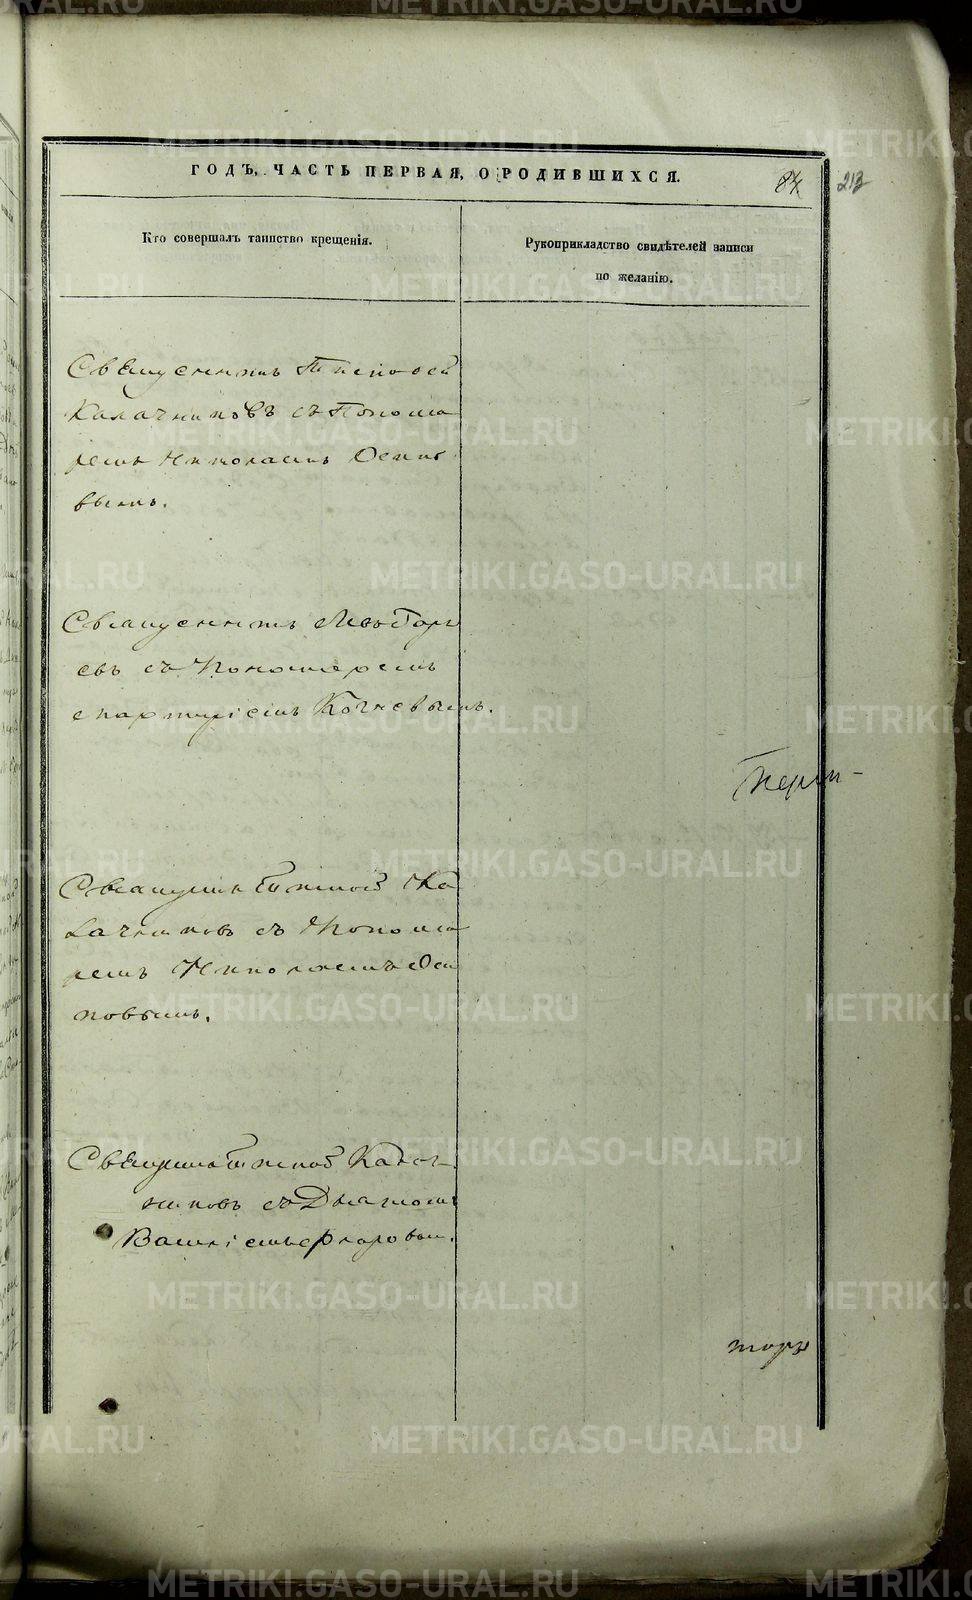 ГОДЪ, ЧАСТЬ ПЕРВАЯ, О РОДИВШИХСЯ.
84 213
Кто совершалъ таинство крещенія.
Рукоприкладство свидѣтелей записи
по желанію.
Священникъ Тимофей
Калачниковъ съ Понома
ремъ Николаемъ Осипо
вымъ.
Священникъ Левъ
евъ съ Пономаремъ
Кочневымъ.
Священникъ Тимофей Ка
лачниковъ съ Понома
ремъ Николаемъ Оси
повымъ.
Священникъ Тимофей Калач
никовъ съ Дьячкомъ
Василіемъ Флоровым.
METRIKI.GASO-URAL.RU